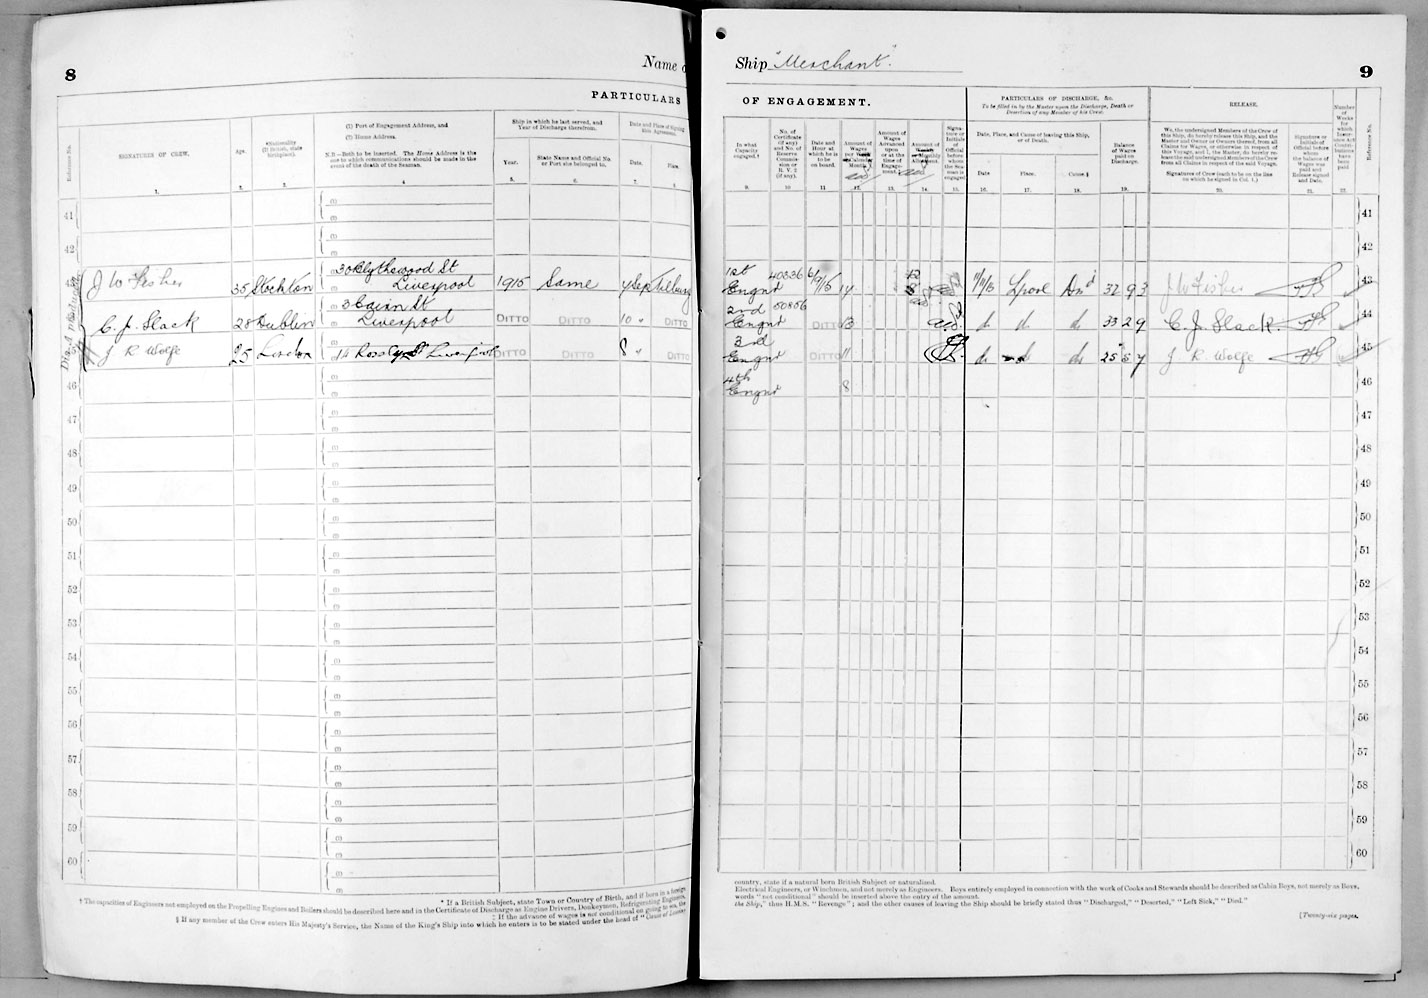 8
Name o
PARTICULARS
Reference No.
SIGNATURES OF CREW.
Age.
*Nationality
(If British, state
birthplace).
(1) Port of Engagement Address, and
(2) Home Address.
N.B.—Both to be inserted. The Home Address is the
one to which communications should be made in the
event of the death of the Seaman.
Ship in which he last served, and
Year of Discharge therefrom.
Year.
State Name and Official No.
or Port she belonged to.
Date and Place of Signing
this Agreement.
Date.
Place.
1.
2.
3.
4
5.
6.
7.
8
41
42
J W Fisher 35 Stockton
Liverpool 1915 Same 7 Sep Tilbury
3 Cairn St
C. J. Slack 28 Dublin Liverpool DITTO DITTO 10 " DITTO
J R Wolfe 25 London 14 DITTO DITTO 8 " DITTO
46
47
48
49
50
51
52
53
54
55
56
57
58
59
60
* If a British Subject, state Town or County of Birth, and if born in a foreign
† The capacities of Engineers not employed on the Propelling Engines and Boilers should be described here and in the Certificate of Discharge as Engine Drivers, Donkeymen, Refrigerating Engineers,
‡ If the advance of wages is not conditional on going to sea, the
§ If any member of the Crew enters His Majesty's Service, the Name of the King's Ship into which he enters is to be stated under the head of "Cause of Leaving
Ship "Merchant".
9
OF ENGAGEMENT.
PARTICULARS OF DISCHARGE, &c.
To be filled in by the Master upon the Discharge, Death or
Desertion of any Member of his Crew.
RELEASE.
In what
Capacity
engaged.†
No. of
Certificate
(if any)
and No. of
Reserve
Commis-
sion or
R. V. 2
(if any).
Date and
Hour at
which he is
to be
on board.
Amount of
Wages
per
Month
Amount of
Wages
Advanced
upon
or at the
time of
Engage-
ment.
Amount of
Monthly
Allotment.
Signa-
ture or
Initials
of
Official
before
whom
the Sea-
man is
engaged
Date, Place, and Cause of leaving this Ship,
or of Death.
Date
Place.
Cause §
Balance
of Wages
paid on
Discharge.
We, the undersigned Members of the Crew of
this Ship, do hereby release this Ship, and the
Master and Owner or Owners thereof, from all
Claims for Wages, or otherwise in respect of
this Voyage, and I, the Master, do hereby re-
lease the said undersigned Members of the Crew
from all Claims in respect of the said Voyage.
Signatures of Crew (each to be on the line
on which he signed in Col. 1.)
Signature or
Initials of
Official before
whom
the balance of
Wages was
paid and
Release signed
and Date.
Number
of
Weeks
for
which
Insur-
ance Act
Contri-
butions
have
been
paid
Reference No.
9.
10
11
12.
13.
14.
15.
16.
17.
18.
19.
20.
21.
22.
41
42
1st 40336 6/9/15
Engnr 14 11/11/15 Lpool Disd 32 9 3 J W Fisher 43
2nd 50856
Engnr DITTO 13 do do do 33 2 9 C. J. Slack. 44
3rd
Engnr DITTO 11 do do do 25 5 7 J R Wolfe 45
4th
Engnr 8 46
47
48
49
50
51
52
53
54
55
56
57
58
59
60
country, state if a natural born British Subject or naturalised.
Electrical Engineers, or Winchmen, and not merely as Engineers. Boys entirely employed in connection with the work of Cooks and Stewards should be described as Cabin Boys, not merely as Boys.
words "not conditional" should be inserted above the entry of the amount.
the Ship," thus H.M.S. "Revenge"; and the other causes of leaving the Ship should be briefly stated thus "Discharged," "Deserted," "Left Sick," "Died."
[Twenty-six pages.